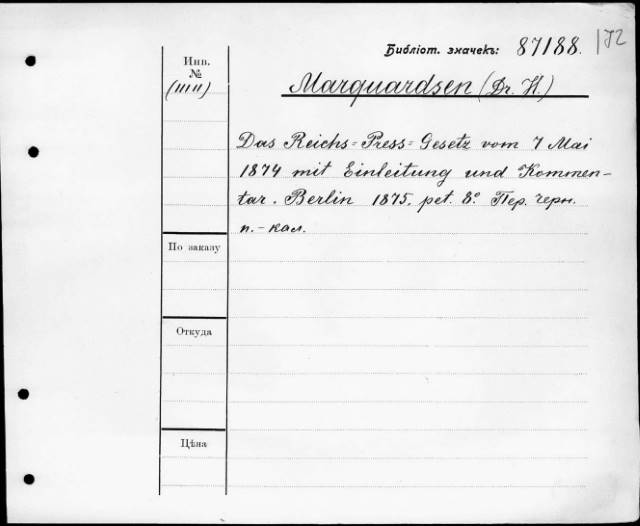 Библіот. значекъ: 87188. 172
Инв.
№
(ШП)
Marquardsen (Dr. H.)
Das Reichs=Press=Gesetz vom 7 Mai
1874 mit Einleitung und Kommen-
tar. Berlin 1875. pet. 8º Пер. черн.
п.-кал.
По заказу
Откуда
Цѣна